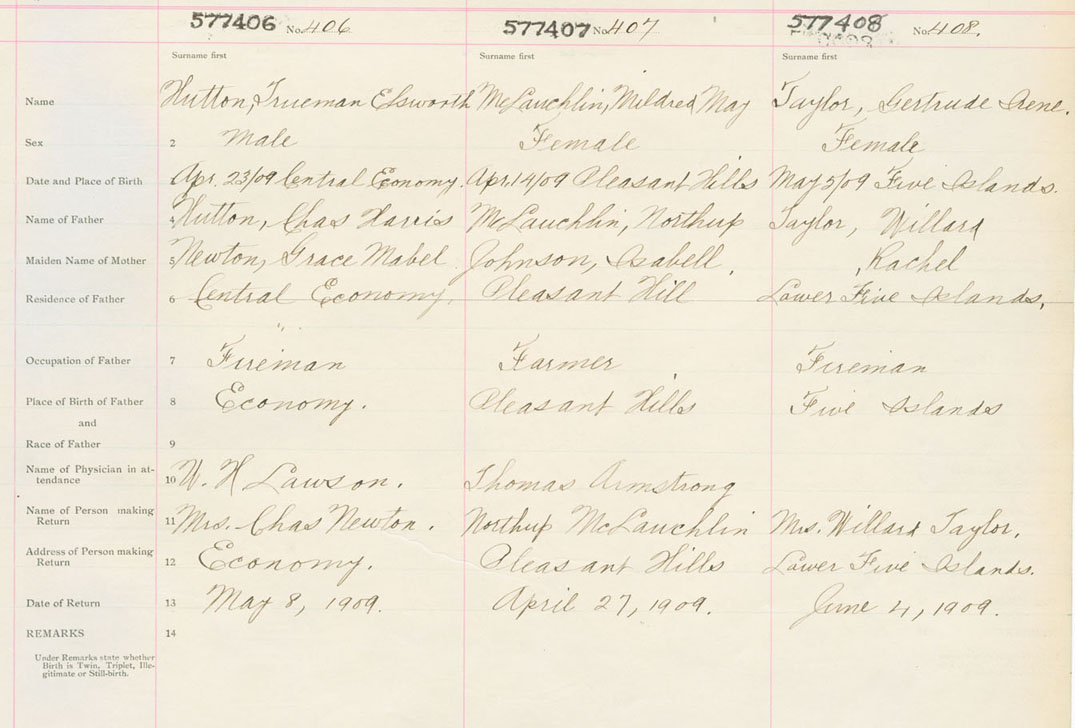 577406 No. 406 577407 No. 407 577408 No. 408.
Surname first Surname first Surname first
Name Hutton, Trueman Elsworth McLauchlin, Mildred May Taylor, Gertrude Irene.
Sex 2 Male Female Female
Date and Place of Birth Apr. 23/09 Central Economy. Apr. 14/09 Pleasant Hills May 5/09 Five Islands.
Name of Father 4 Hutton, Chas Harris McLauchlin, Northup Taylor, Willard
Maiden Name of Mother 5 Newton, Grace Mabel Johnson, Isabell. , Rachel
Residence of Father 6 Central Economy. Pleasant Hill Lower Five Islands.
"
Occupation of Father 7 Fireman Farmer Fireman
Place of Birth of Father 8 Economy. Pleasant Hills Five Islands
and
Race of Father 9
Name of Physician in at-
tendance 10 W. H Lawson. Thomas Armstrong
Name of Person making
Return 11 Mrs. Chas Newton. Northup McLauchlin Mrs. Willard Taylor.
Address of Person making
Return 12 Economy. Pleasant Hills Lower Five Islands.
Date of Return 13 May 8, 1909. April 27, 1909. June 4, 1909.
REMARKS 14
Under Remarks state whether
Birth is Twin, Triplet, Ille-
gitimate or Still-birth.